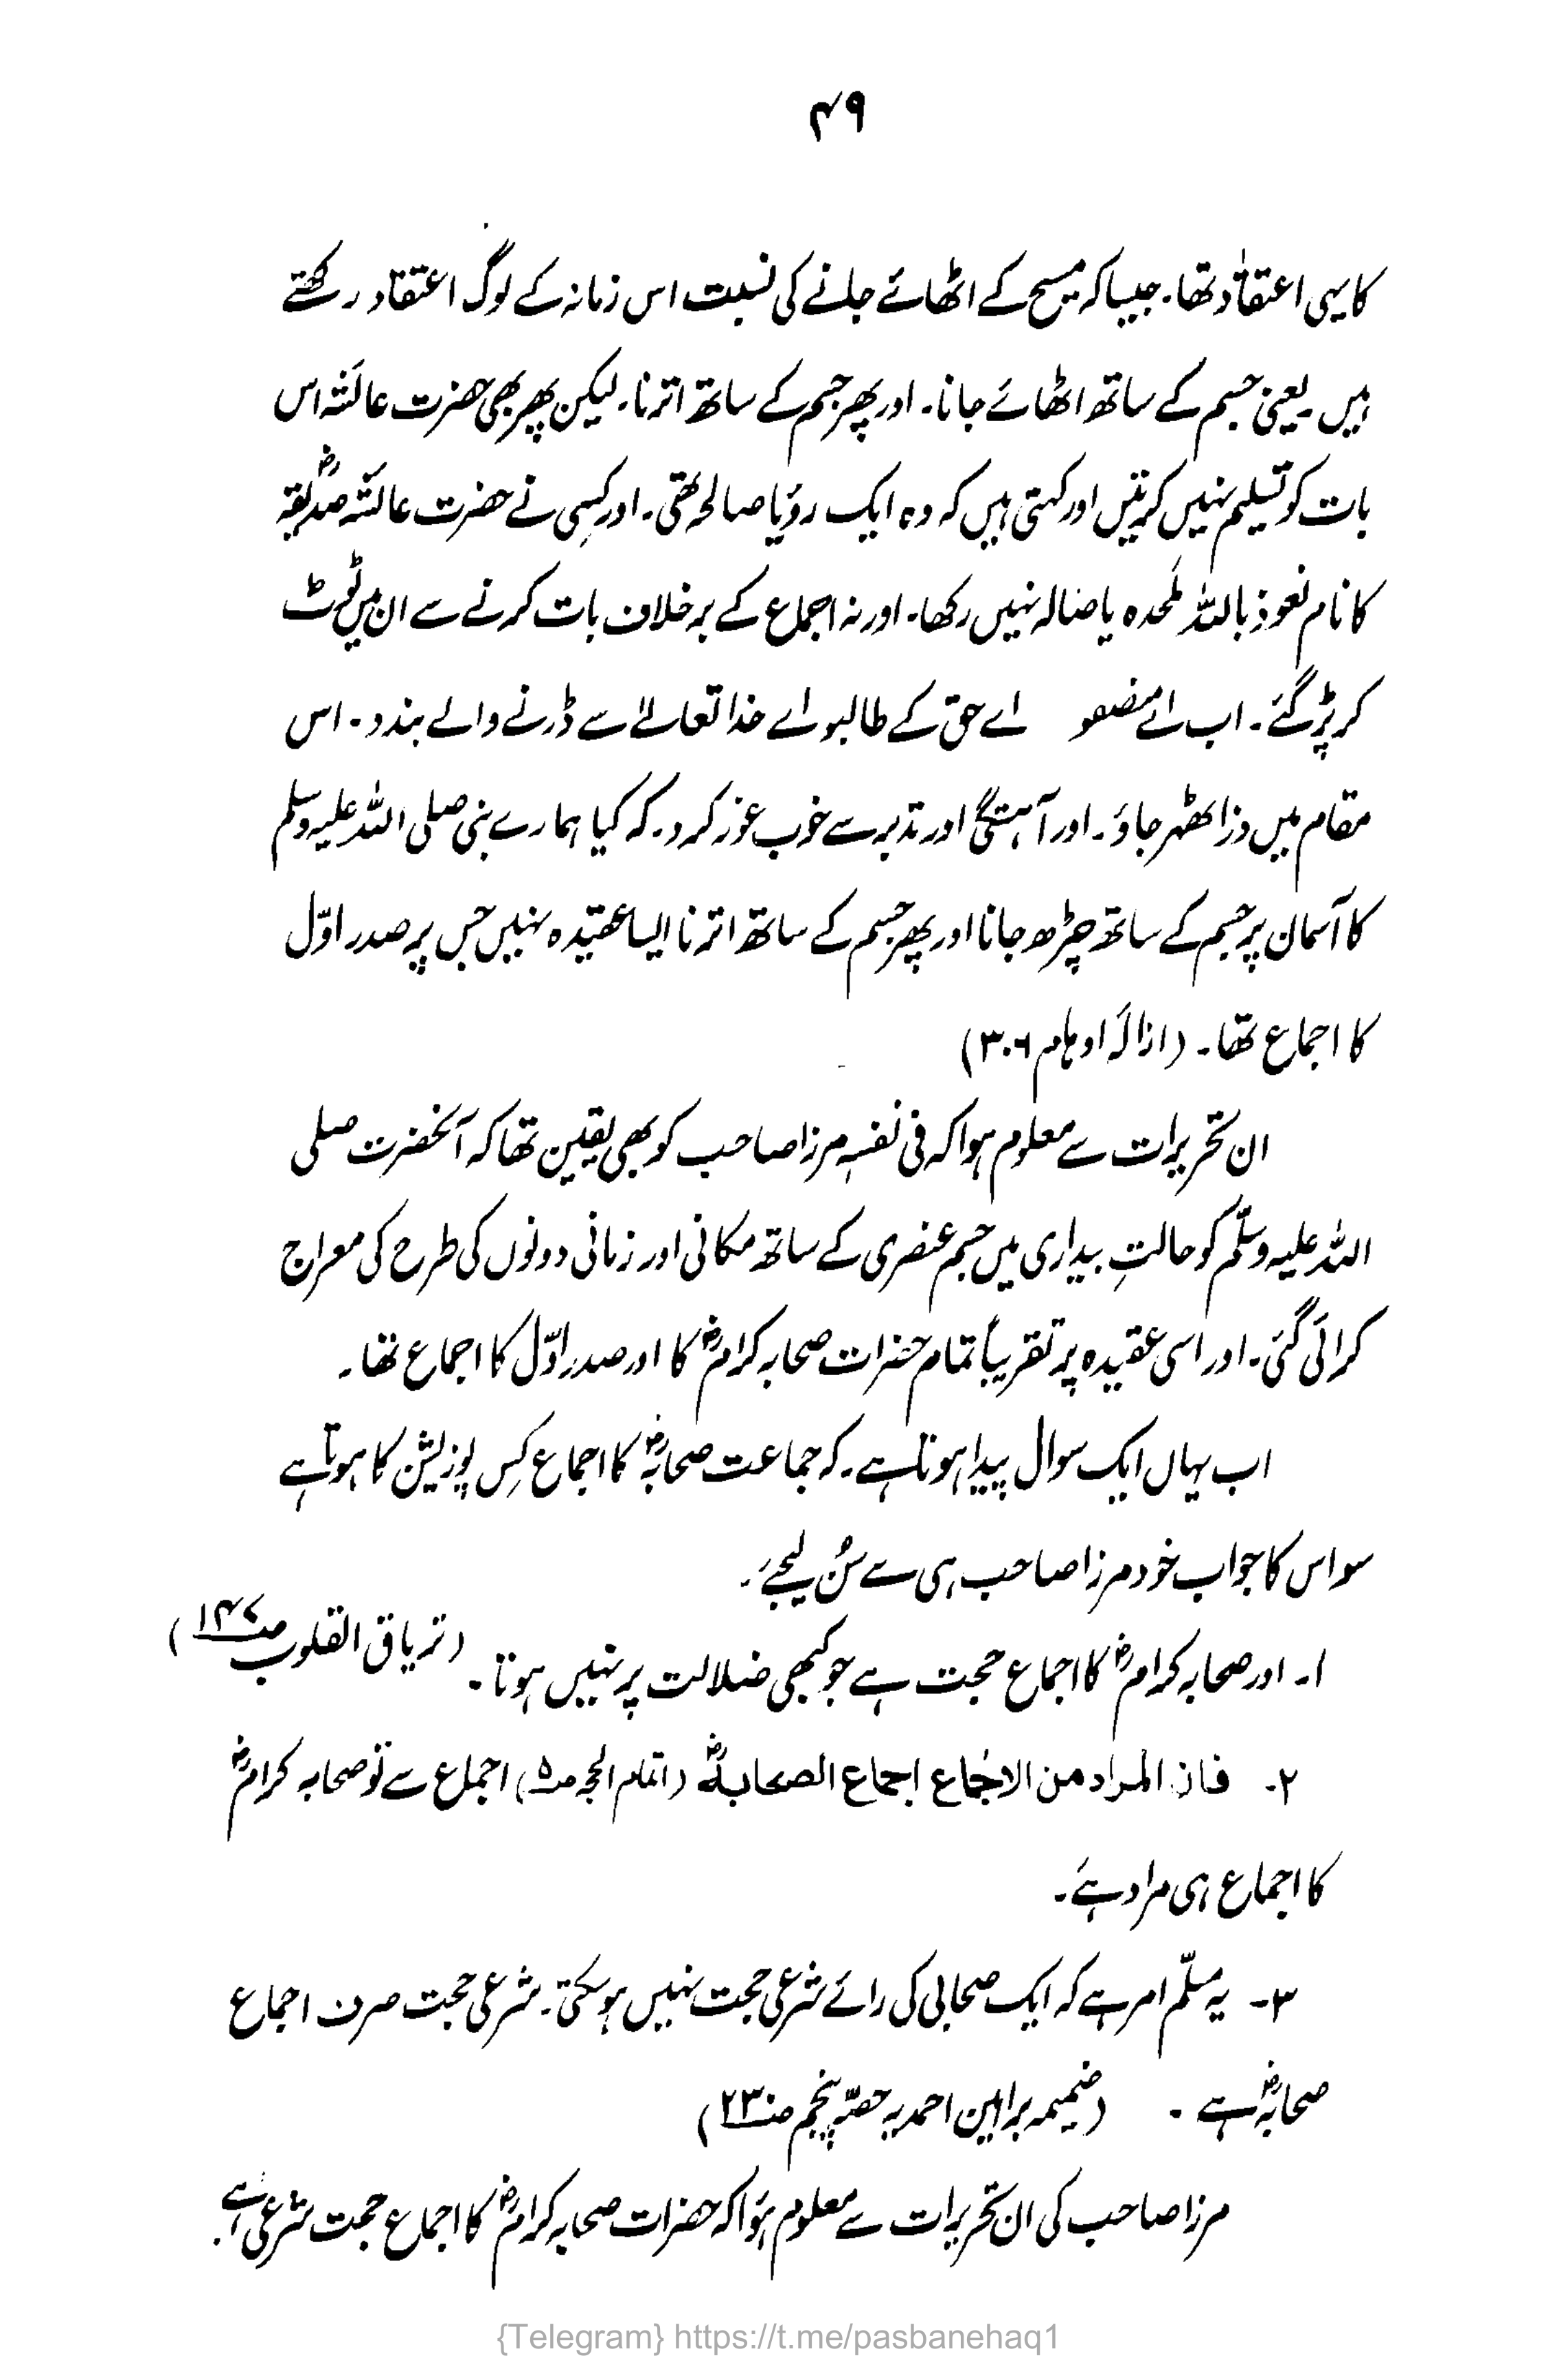 ۴۹
کا یہی اعتقاد تھا۔ جیسا کہ مسیح کے اٹھائے جانے کی نسبت اس زمانہ کے لوگ اعتقاد رکھتے
ہیں۔ یعنی جسم کے ساتھ اٹھائے جانا۔ اور پھر جسم کے ساتھ اترنا۔ لیکن پھر بھی حضرت عائشہ اس
بات کو تسلیم نہیں کرتیں اور کہتی ہیں کہ وہ ایک رؤیا صالحہ تھی۔ اور کسی نے حضرت عائشہ صدیقہؓ
کا نام نعوذ باللہ ملحدہ یا ضالہ نہیں رکھا۔ اور نہ اجماع کے برخلاف بات کرنے سے ان میں ٹوٹ
کر پڑ گئے۔ اب اے منصفو اے حق کے طالبو اے خدا تعالےٰ سے ڈرنے والے بندو۔ اس
مقام میں ذرا ٹھہر جاؤ۔ اور آہستگی اور تدبر سے خوب غور کرو۔ کہ کیا ہمارے نبی صلی اللہ علیہ وسلم
کا آسمان پر جسم کے ساتھ چڑھ جانا اور پھر جسم کے ساتھ اترنا ایسا عقیدہ نہیں جس پر صدر اوّل
کا اجماع تھا۔ (ازالہ اوہام ۳۰۶)
ان تحریرات سے معلوم ہوا کہ فی نفسہٖ مرزا صاحب کو بھی یقین تھا کہ آنحضرت صلی
اللہ علیہ وسلّم کو حالتِ بیداری میں جسم عنصری کے ساتھ مکانی اور زمانی دونوں کی طرح کی معراج
کرائی گئی۔ اور اسی عقیدہ پر تقریباً تمام حضرات صحابہ کرامؓ کا اور صدر اوّل کا اجماع تھا۔
اب یہاں ایک سوال پیدا ہوتا ہے۔ کہ جماعت صحابہؓ کا اجماع کِس پوزیشن کا ہوتا ہے
سو اس کا جواب خود مرزا صاحب ہی سے سُن لیجئے۔
۱۔ اور صحابہ کرامؓ کا اجماع حجت ہے جو کبھی ضلالت پر نہیں ہوتا۔ (تریاق القلوب صـ۱۴۷)
۲۔ فان المراد من الاجماع اجماع الصحابۃؓ (اتمام الحجہ صـ۵) اجماع سے تو صحابہ کرامؓ
کا اجماع ہی مراد ہے۔
۳۔ یہ مسلّم امر ہے کہ ایک صحابی کی رائے شرعی حجت نہیں ہو سکتی۔ شرعی حجت صرف اجماع
صحابہؓ ہے۔ (ضمیمہ براہین احمدیہ حصّہ پنجم صـ۲۳)
مرزا صاحب کی ان تحریرات سے معلوم ہؤا کہ حضرات صحابہ کرامؓ کا اجماع حجت شرعی ہے۔
{Telegram} https://t.me/pasbanehaq1